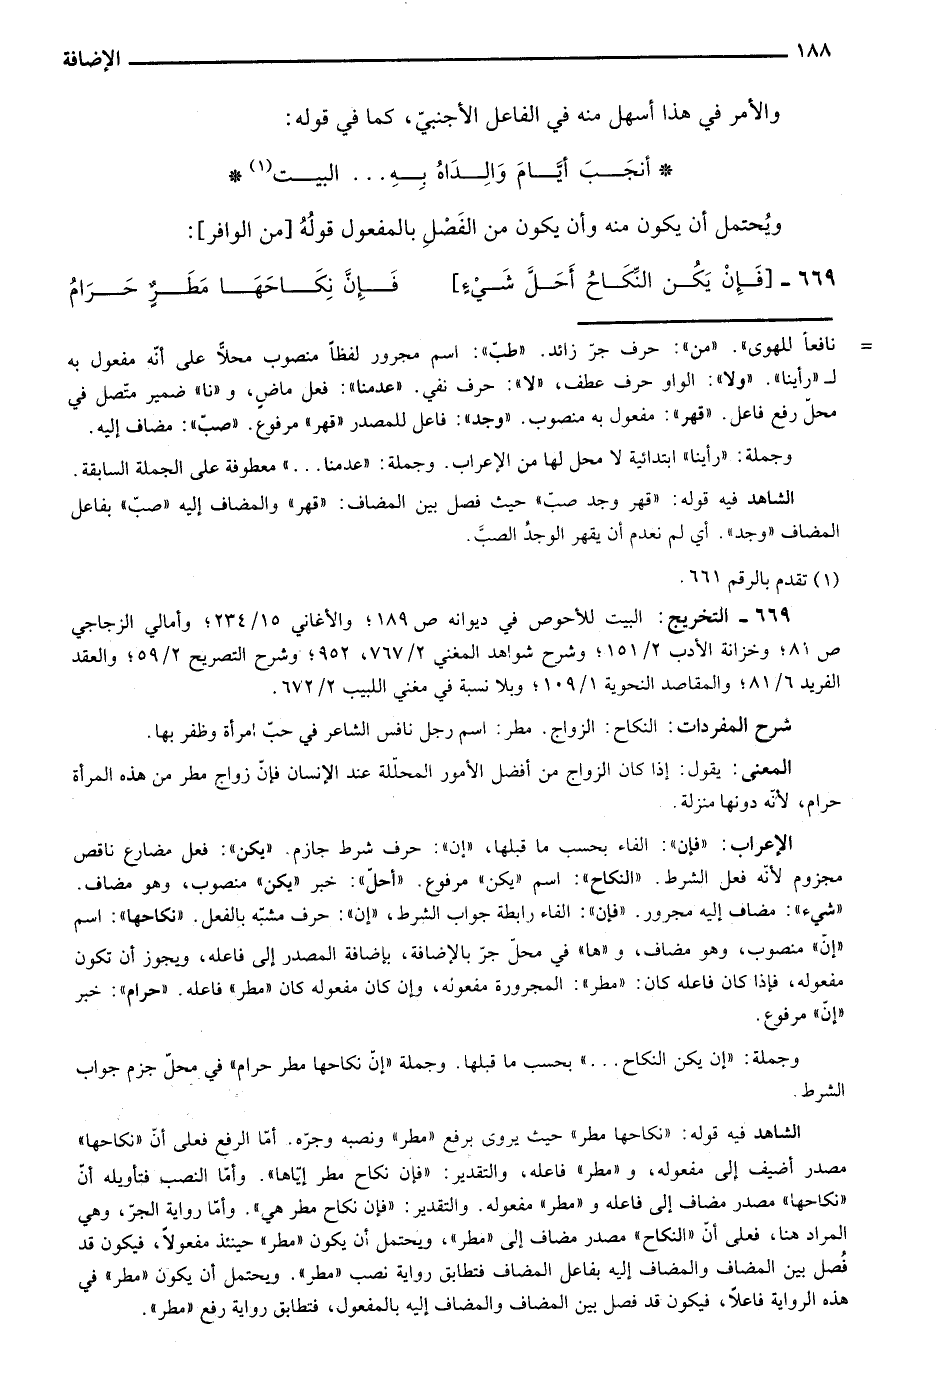 ١٨٨ الإضافة
والأمر في هذا أسهل منه في الفاعل الأجنبيّ، كما في قوله:
* أنجَبَ أيَّامَ وَالِدَاهُ بِهِ... البيت(١) *
ويُحتمل أن يكون منه وأن يكون من الفَصْلِ بالمفعول قولُهُ [من الوافر]:
٦٦٩ ـ [فَإِنْ يَكُن النِّكَاحُ أَحَلَّ شَيْءٍ] فَإِنَّ نِكَاحَهَا مَطَرٍ حَرَامُ
= نافعاً للهوى». «من»: حرف جرّ زائد. «طبّ»: اسم مجرور لفظاً منصوب محلاًّ على أنّه مفعول به
لـ «رأينا». «ولا»: الواو حرف عطف، «لا»: حرف نفي. «عدمنا»: فعل ماضٍ، و «نا» ضمير متّصل في
محلّ رفع فاعل. «قهر»: مفعول به منصوب. «وجد»: فاعل للمصدر «قهر» مرفوع. «صبّ»: مضاف إليه.
وجملة: «رأينا» ابتدائية لا محل لها من الإعراب. وجملة: «عدمنا...» معطوفة على الجملة السابقة.
الشاهد فيه قوله: «قهر وجد صبّ» حيث فصل بين المضاف: «قهر» والمضاف إليه «صبّ» بفاعل
المضاف «وجد». أي لم نعدم أن يقهر الوجدُ الصبَّ.
(١) تقدم بالرقم ٦٦١.
٦٦٩ ـ التخريج: البيت للأحوص في ديوانه ص ١٨٩؛ والأغاني ١٥/ ٢٣٤؛ وأمالي الزجاجي
ص ٨١؛ وخزانة الأدب ٢/ ١٥١؛ وشرح شواهد المغني ٢/ ٧٦٧، ٩٥٢؛ وشرح التصريح ٢/ ٥٩؛ والعقد
الفريد ٦/ ٨١؛ والمقاصد النحوية ١/ ١٠٩؛ وبلا نسبة في مغني اللبيب ٢/ ٦٧٢.
شرح المفردات: النكاح: الزواج. مطر: اسم رجل نافس الشاعر في حبّ امرأة وظفر بها.
المعنى: يقول: إذا كان الزواج من أفضل الأمور المحلّلة عند الإنسان فإنّ زواج مطر من هذه المرأة
حرام، لأنّه دونها منزلة.
الإعراب: «فإن»: الفاء بحسب ما قبلها، «إن»: حرف شرط جازم. «يكن»: فعل مضارع ناقص
مجزوم لأنّه فعل الشرط. «النكاح»: اسم «يكن» مرفوع. «أحلّ»: خبر «يكن» منصوب، وهو مضاف.
«شيء»: مضاف إليه مجرور. «فإن»: الفاء رابطة جواب الشرط، «إن»: حرف مشبّه بالفعل. «نكاحها»: اسم
«إنّ» منصوب، وهو مضاف، و «ها» في محلّ جرّ بالإضافة، بإضافة المصدر إلى فاعله، ويجوز أن تكون
مفعوله، فإذا كان فاعله كان: «مطر»: المجرورة مفعوله، وإن كان مفعوله كان «مطر» فاعله. «حرام»: خبر
«إنّ» مرفوع.
وجملة: «إن يكن النكاح...» بحسب ما قبلها. وجملة «إنّ نكاحها مطر حرام» في محلّ جزم جواب
الشرط.
الشاهد فيه قوله: «نكاحها مطر» حيث يروى برفع «مطر» ونصبه وجرّه. أمّا الرفع فعلى أنّ «نكاحها»
مصدر أضيف إلى مفعوله، و «مطر» فاعله، والتقدير: «فإن نكاح مطر إيّاها». وأمّا النصب فتأويله أنّ
«نكاحها» مصدر مضاف إلى فاعله و «مطر» مفعوله. والتقدير: «فإن نكاح مطر هي». وأمّا رواية الجرّ، وهي
المراد هنا، فعلى أنّ «النكاح» مصدر مضاف إلى «مطر»، ويحتمل أن يكون «مطر» حينئذ مفعولاً، فيكون قد
فُصل بين المضاف والمضاف إليه بفاعل المضاف فتطابق رواية نصب «مطر». ويحتمل أن يكون «مطر» في
هذه الرواية فاعلاً، فيكون قد فصل بين المضاف والمضاف إليه بالمفعول، فتطابق رواية رفع «مطر».